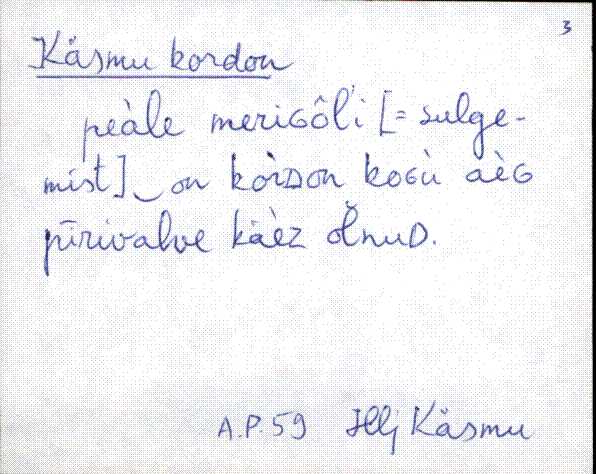 3
Käsmu kordon
peàle meriGôĺi [= sulge-
mist] ‿ on kòrDon koGù aèG
pīrivalve kä̀ez ol̆nuD.
A.P. 59 Hlj Käsmu